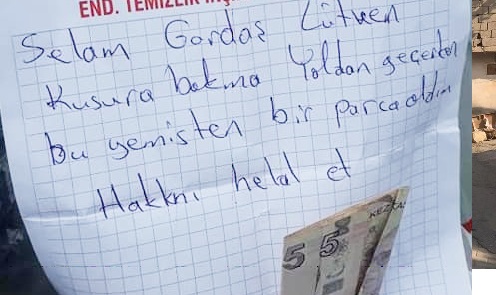 END. TEMİZLİK
Selam Gardaş Lütven
Kusura bakma Yoldan geçerken
bu yemisten bir parca aldım
Hakknı helal et
5 5